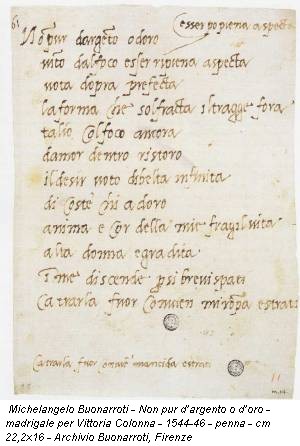 63
esser po piena aspecta
No pur dargēto o doro
vīto dal foco esser ripiena aspecta
vota dopra prefecta
la forma che sol fracta il tragge fora
tal io col foco ancora
damor dentro ristoro
il desir voto di beltà infinita
di coste chi adoro
anima e cor della mie fragil vita
alta donna e gradita
ī me discende p si brevi spati
ca trarla fuor convien mi ropa e strati
ca trarla fuor
11
Michelangelo Buonarroti - Non pur d'argento o d'oro -
madrigale per Vittoria Colonna - 1544-46 - penna - cm
22,2x16 - Archivio Buonarroti, Firenze